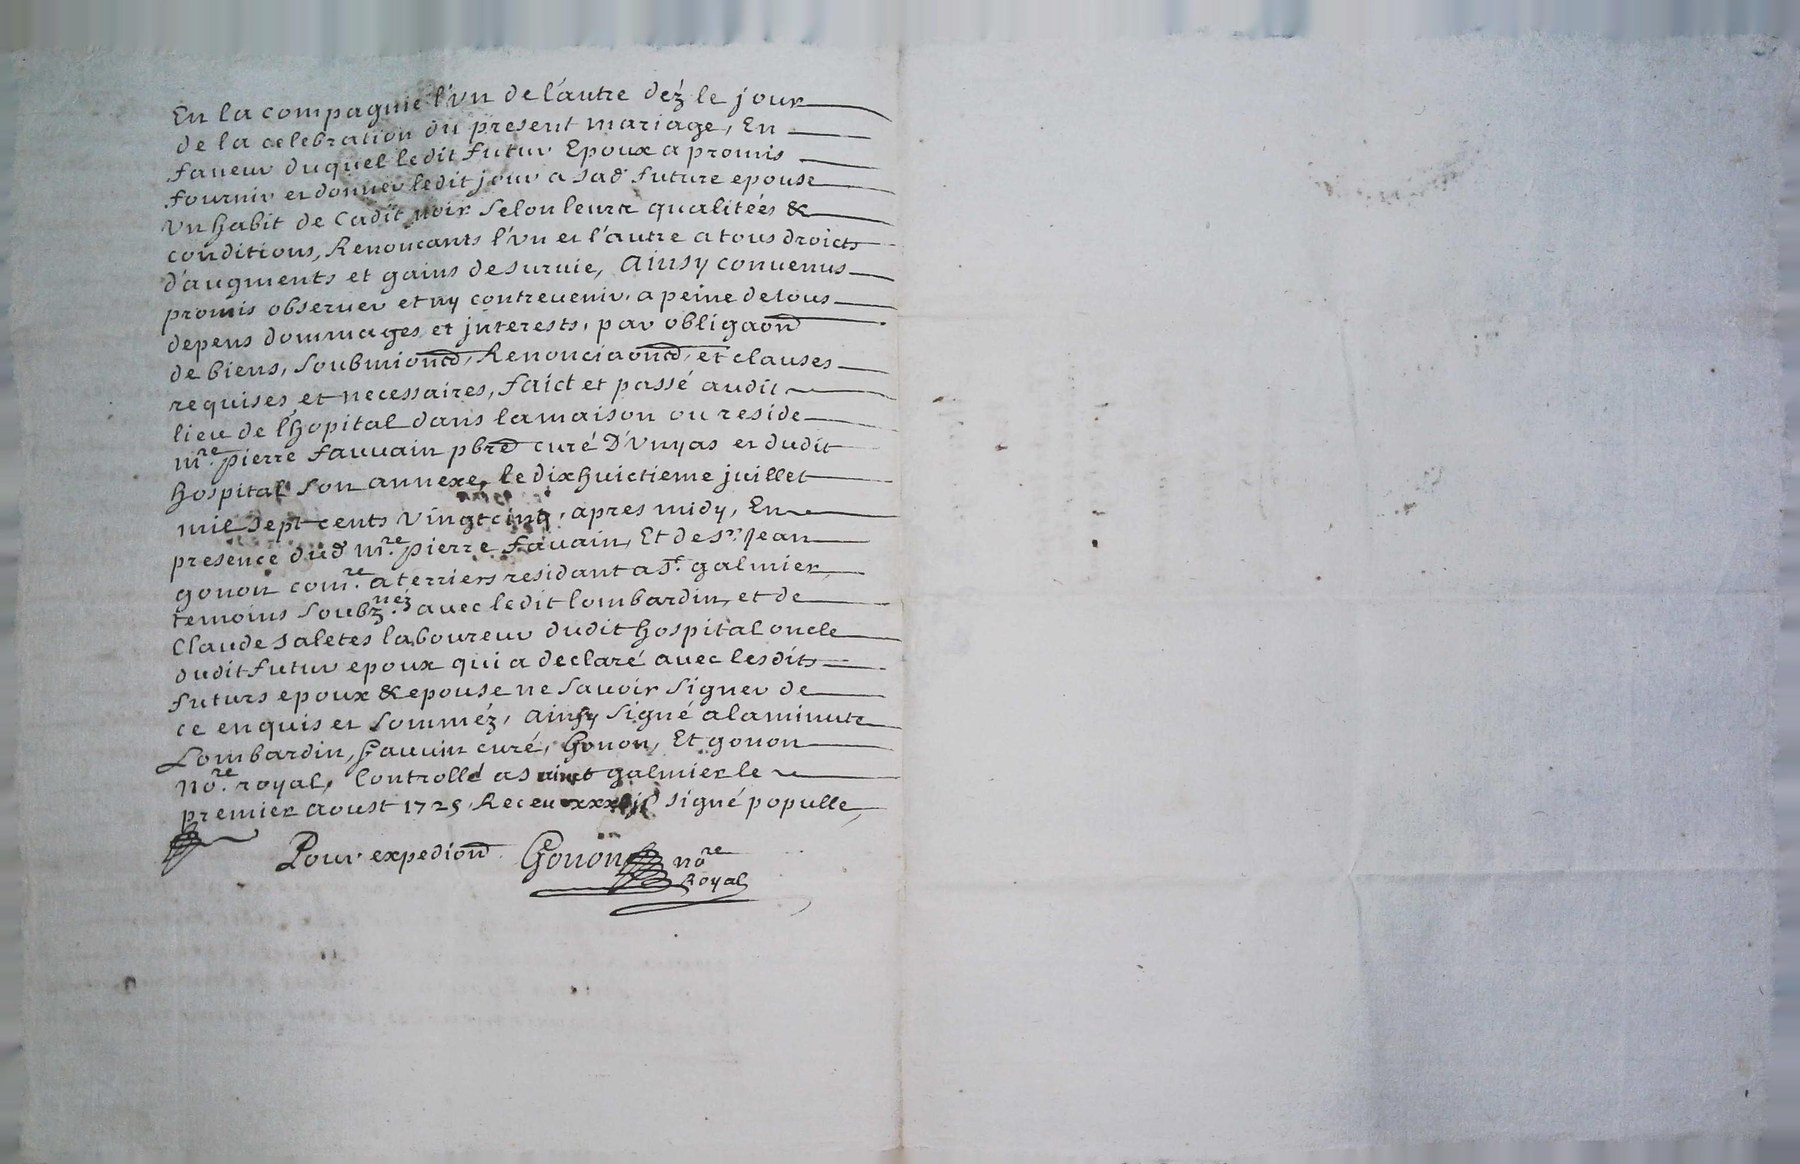 En la compagnie l'un de l'autre dez le jour
de la celebration du present mariage, En
faveur duquel ledit futur Epoux a promis
fournir et donner ledit jour a sad. future epouse
Un habit de Cadit noir selon leurs qualitées &
conditions, Renoncants l'un et l'autre a tous droicts
d'augments et gains de survie, Ainsy convenus
promis observer et ny contrevenir, a peine de tous
depens dommages et jnterests, par obligaon
de biens, soubmions, Renonciaons, et clauses
requises et necessaires, faict et passé audit
lieu de l'hopital dans la maison ou reside
mre. pierre fauvain pbre curé D'Unyas et dudit
hospital son annexe, le dixhuictieme juillet
mil sept cents vingt cinq, apres midy, En
presence dud. mre. pierre fauvain, Et de sr. Jean
gonon comre. a terriers residant a st. galmier,
temoins soubznéz. avec ledit lombardin, et de
Claude saletes laboureur dudit hospital oncle
dudit futur epoux qui a declaré avec lesdits
futurs epoux & epouse ne savoir signer de
ce enquis et somméz, ainsy signé a la minute
Lombardin, fauvin curé, Gonon, Et gonon
nore. royal, Controllé a saint galmier le
premier Aoust 1725, Receu signé populle,
Pour expedion Gonon nore
Royal